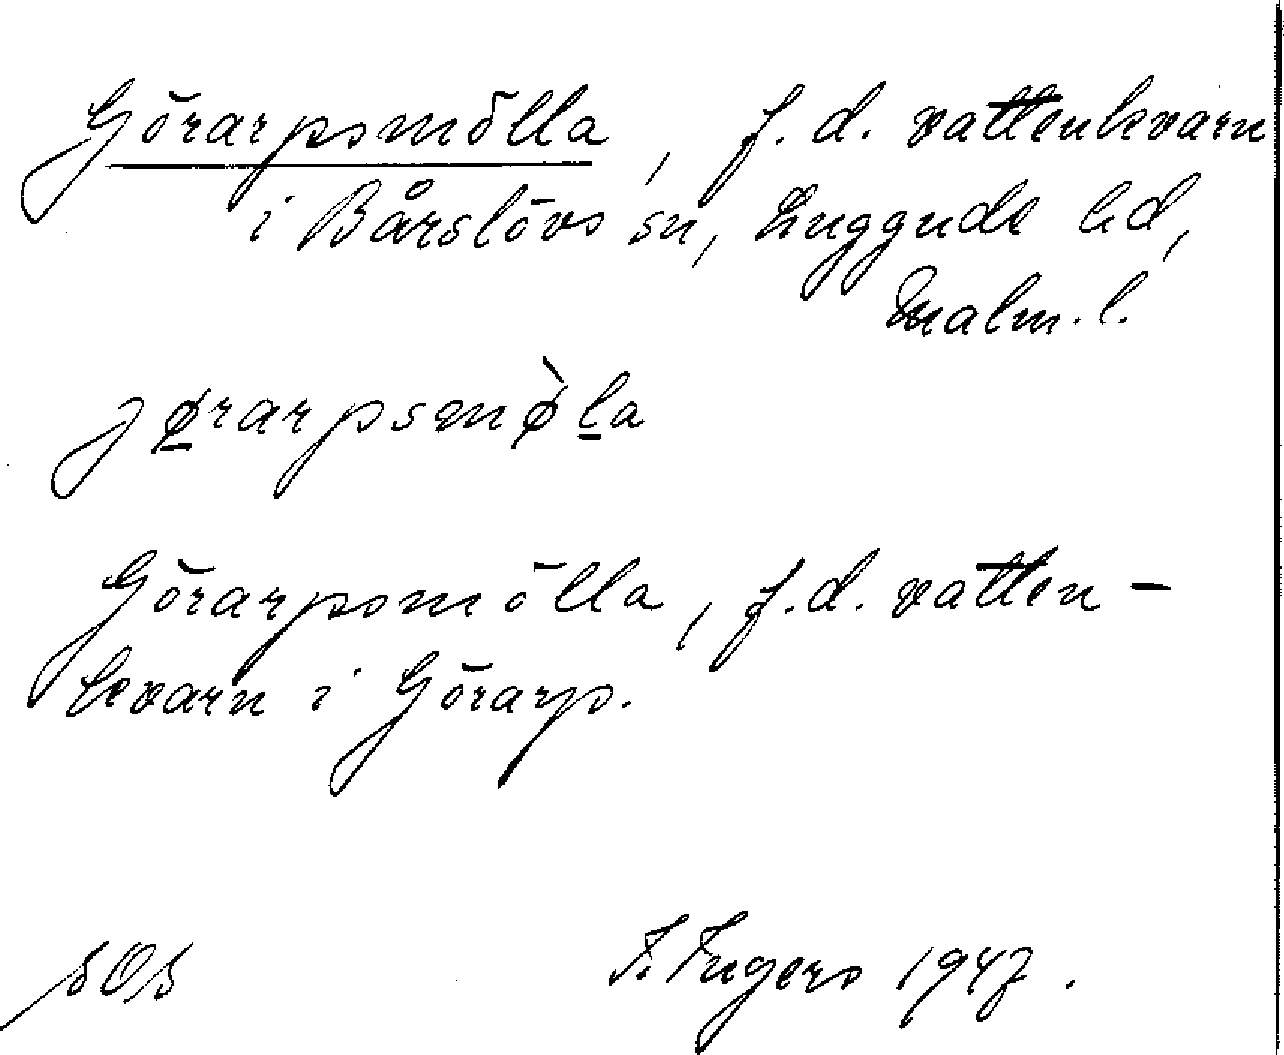 Görarpsmölla, f.d. vattenkvarn
i Bårslövs sn, Luggude hd,
Malm. l.
jø̲rarpsmø̀l̲a
Görarpsmölla, f.d. vatten-
kvarn i Görarp.
I. Ingers 1947.